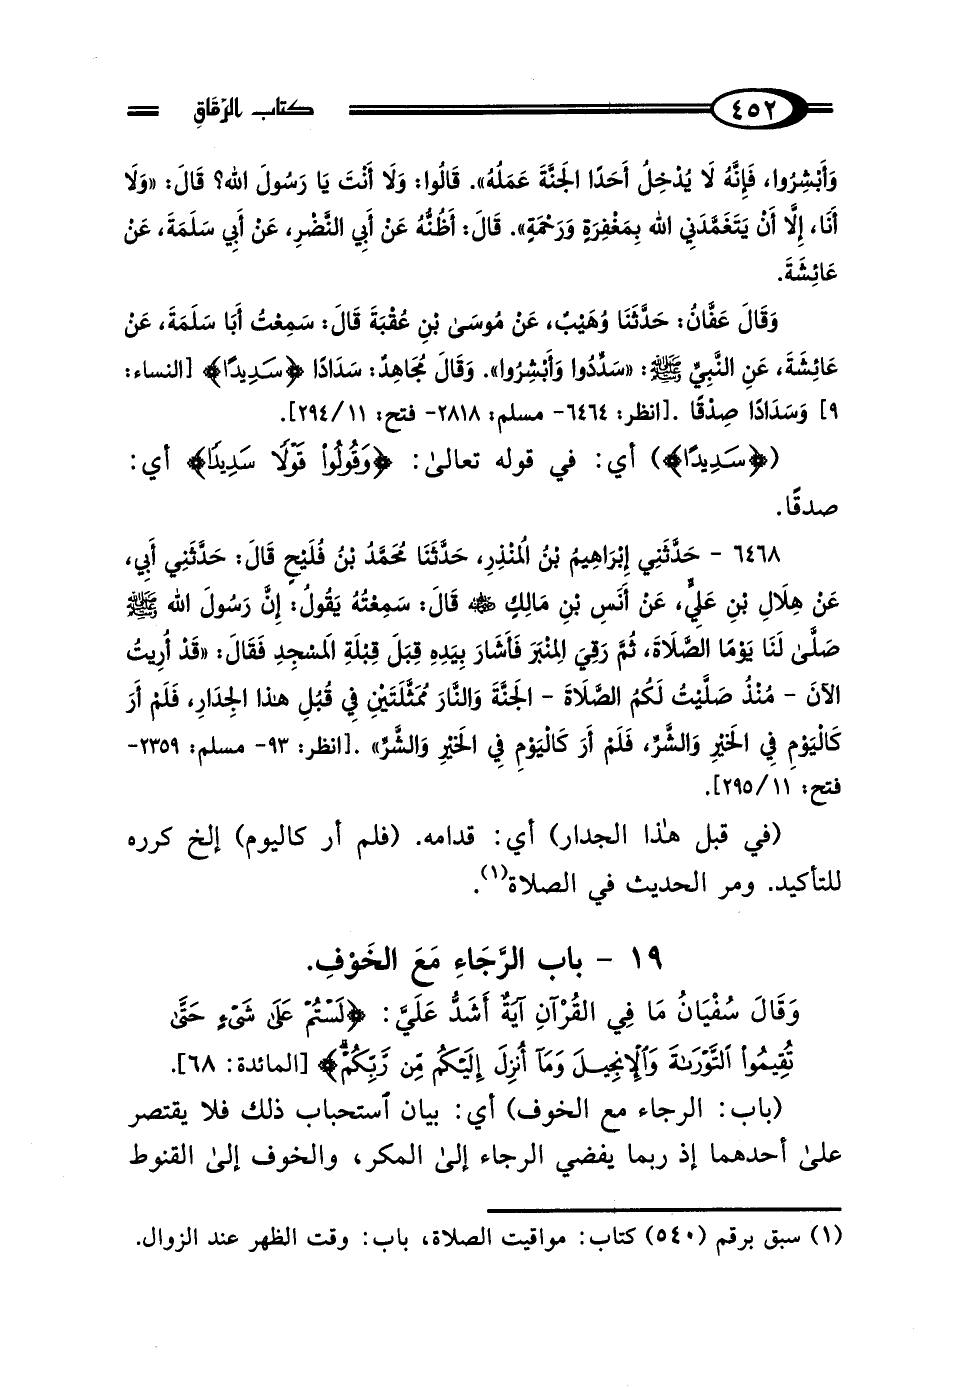 ٤٥٢ كتاب الرقاق
وَأَبْشِرُوا، فَإِنَّهُ لَا يُدْخِلُ أَحَدًا الجَنَّةَ عَمَلُهُ». قَالُوا: وَلَا أَنْتَ يَا رَسُولَ الله؟ قَالَ: «وَلَا
أَنَا، إِلَّا أَنْ يَتَغَمَّدَنِي الله بِمَغْفِرَةٍ وَرَحْمَةٍ». قَالَ: أَظُنُّهُ عَنْ أَبِي النَّضْرِ، عَنْ أَبِي سَلَمَةَ، عَنْ
عَائِشَةَ.
وَقَالَ عَفَّانُ: حَدَّثَنَا وُهَيْبٌ، عَنْ مُوسَىٰ بْنِ عُقْبَةَ قَالَ: سَمِعْتُ أَبَا سَلَمَةَ، عَنْ
عَائِشَةَ، عَنِ النَّبِيِّ ﷺ: «سَدِّدُوا وَأَبْشِرُوا». وَقَالَ مُجَاهِدٌ: سَدَادًا ﴿سَدِيدًا﴾ [النساء:
٩] وَسَدَادًا صِدْقًا .[انظر: ٦٤٦٤- مسلم: ٢٨١٨- فتح: ٢٩٤/١١].
(﴿سَدِيدًا﴾) أي: في قوله تعالىٰ: ﴿وَقُولُوا۟ قَوْلًا سَدِيدًا﴾ أي:
صدقًا.
٦٤٦٨ - حَدَّثَنِي إِبْرَاهِيمُ بْنُ المُنْذِرِ، حَدَّثَنَا مُحَمَّدُ بْنُ فُلَيْحٍ قَالَ: حَدَّثَنِي أَبِي،
عَنْ هِلَالِ بْنِ عَلِيٍّ، عَنْ أَنَسِ بْنِ مَالِكٍ ﵁ قَالَ: سَمِعْتُهُ يَقُولُ: إِنَّ رَسُولَ الله ﷺ
صَلَّىٰ لَنَا يَوْمًا الصَّلَاةَ، ثُمَّ رَقِيَ المِنْبَرَ فَأَشَارَ بِيَدِهِ قِبَلَ قِبْلَةِ المَسْجِدِ فَقَالَ: «قَدْ أُرِيتُ
الآنَ - مُنْذُ صَلَّيْتُ لَكُمُ الصَّلَاةَ - الجَنَّةَ وَالنَّارَ مُمَثَّلَتَيْنِ فِي قُبُلِ هذا الجِدَارِ، فَلَمْ أَرَ
كَالْيَوْمِ فِي الخَيْرِ وَالشَّرِّ، فَلَمْ أَرَ كَالْيَوْمِ فِي الخَيْرِ وَالشَّرِّ» .[انظر: ٩٣- مسلم: ٢٣٥٩-
فتح: ٢٩٥/١١].
(في قبل هٰذا الجدار) أي: قدامه. (فلم أر كاليوم) إلخ كرره
للتأكيد. ومر الحديث في الصلاة(١).
١٩ - باب الرَّجَاءِ مَعَ الخَوْفِ.
وَقَالَ سُفْيَانُ مَا فِي القُرْآنِ آيَةٌ أَشَدُّ عَلَيَّ: ﴿لَسْتُمْ عَلَىٰ شَىْءٍ حَتَّىٰ
تُقِيمُوا۟ ٱلتَّوْرَىٰةَ وَٱلْإِنجِيلَ وَمَآ أُنزِلَ إِلَيْكُم مِّن رَّبِّكُمْ﴾ [المائدة: ٦٨].
(باب: الرجاء مع الخوف) أي: بيان ٱستحباب ذلك فلا يقتصر
علىٰ أحدهما إذ ربما يفضي الرجاء إلىٰ المكر، والخوف إلىٰ القنوط
(١) سبق برقم (٥٤٠) كتاب: مواقيت الصلاة، باب: وقت الظهر عند الزوال.